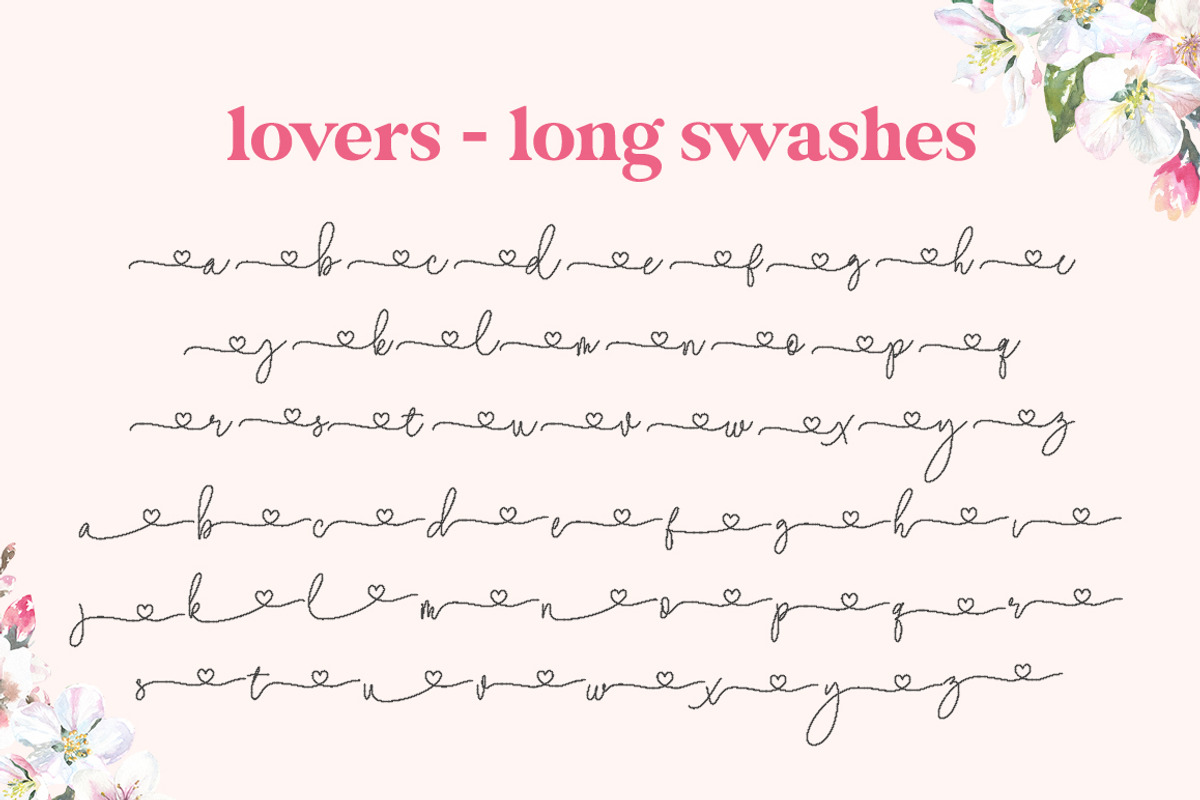 lovers - long swashes
a b c d e f g h i
j k l m n o p q
r s t u v w x y z
a b c d e f g h i
j k l m n o p q r
s t u v w x y z